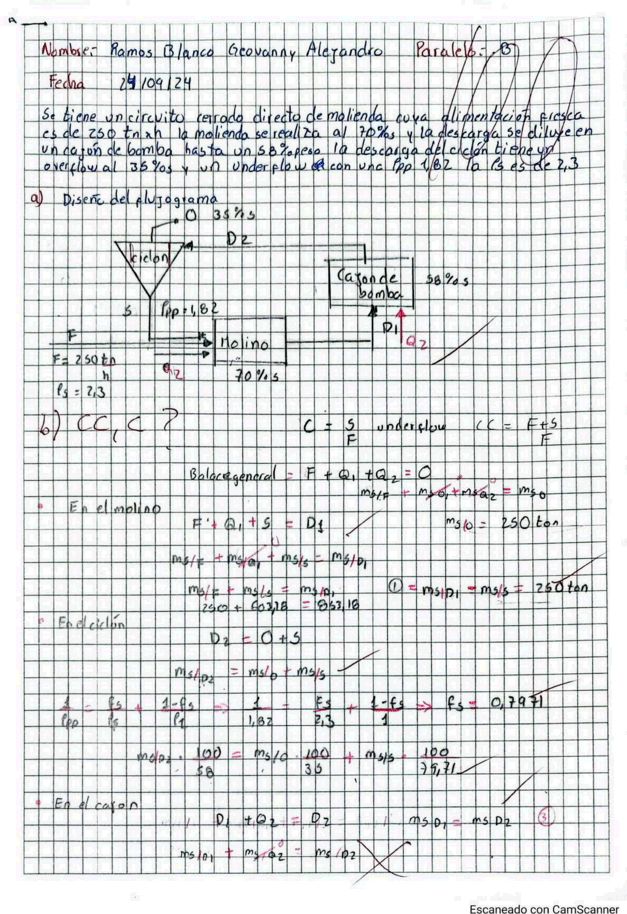 Nombre: Ramos Blanco Geovanny Alejandro Paralelo: B
Fecha 24/09/24
Se tiene un circuito cerrado directo de molienda cuya alimentación fresca
es de 250 tn xh la molienda se realiza al 70%s y la descarga se diluye en
un cajón de bomba hasta un 58% peso la descarga del ciclón tiene un
overflow al 35%s y un underflow con una ρpp 1,82 la ρs es de 2,3
a) Diseñe del flujograma
O 35%s
D2
ciclon
Cajon de bomba 58%s
S ρpp=1,82
F
Molino
D1
Q2
F= 250 tn/h
70%s
ρs = 2,3
b) CC, C ?
C = S/F underflow CC = F+S/F
Balance general = F + Q1 + Q2 = O
ms/F + ms/Q1 + ms/Q2 = ms/O
En el molino
F + Q1 + S = D1
ms/O = 250 ton
ms/F + ms/Q1 + ms/s = ms/D1
ms/F + ms/s = ms/D1
① = ms/D1 - ms/s = 250 ton
250 + 603,18 = 853,18
En el ciclón
D2 = O + S
ms/D2 = ms/O + ms/s
1/ρpp = fs/ρs + 1-fs/ρl ⇒ 1/1,82 = fs/2,3 + 1-fs/1 ⇒ fs = 0,7971
ms/D2 · 100/58 = ms/O · 100/35 + ms/s · 100/79,71
En el cajon
D1 + Q2 = D2 ms D1 = ms D2 ③
ms/D1 + ms/Q2 = ms/D2
Escaneado con CamScanner